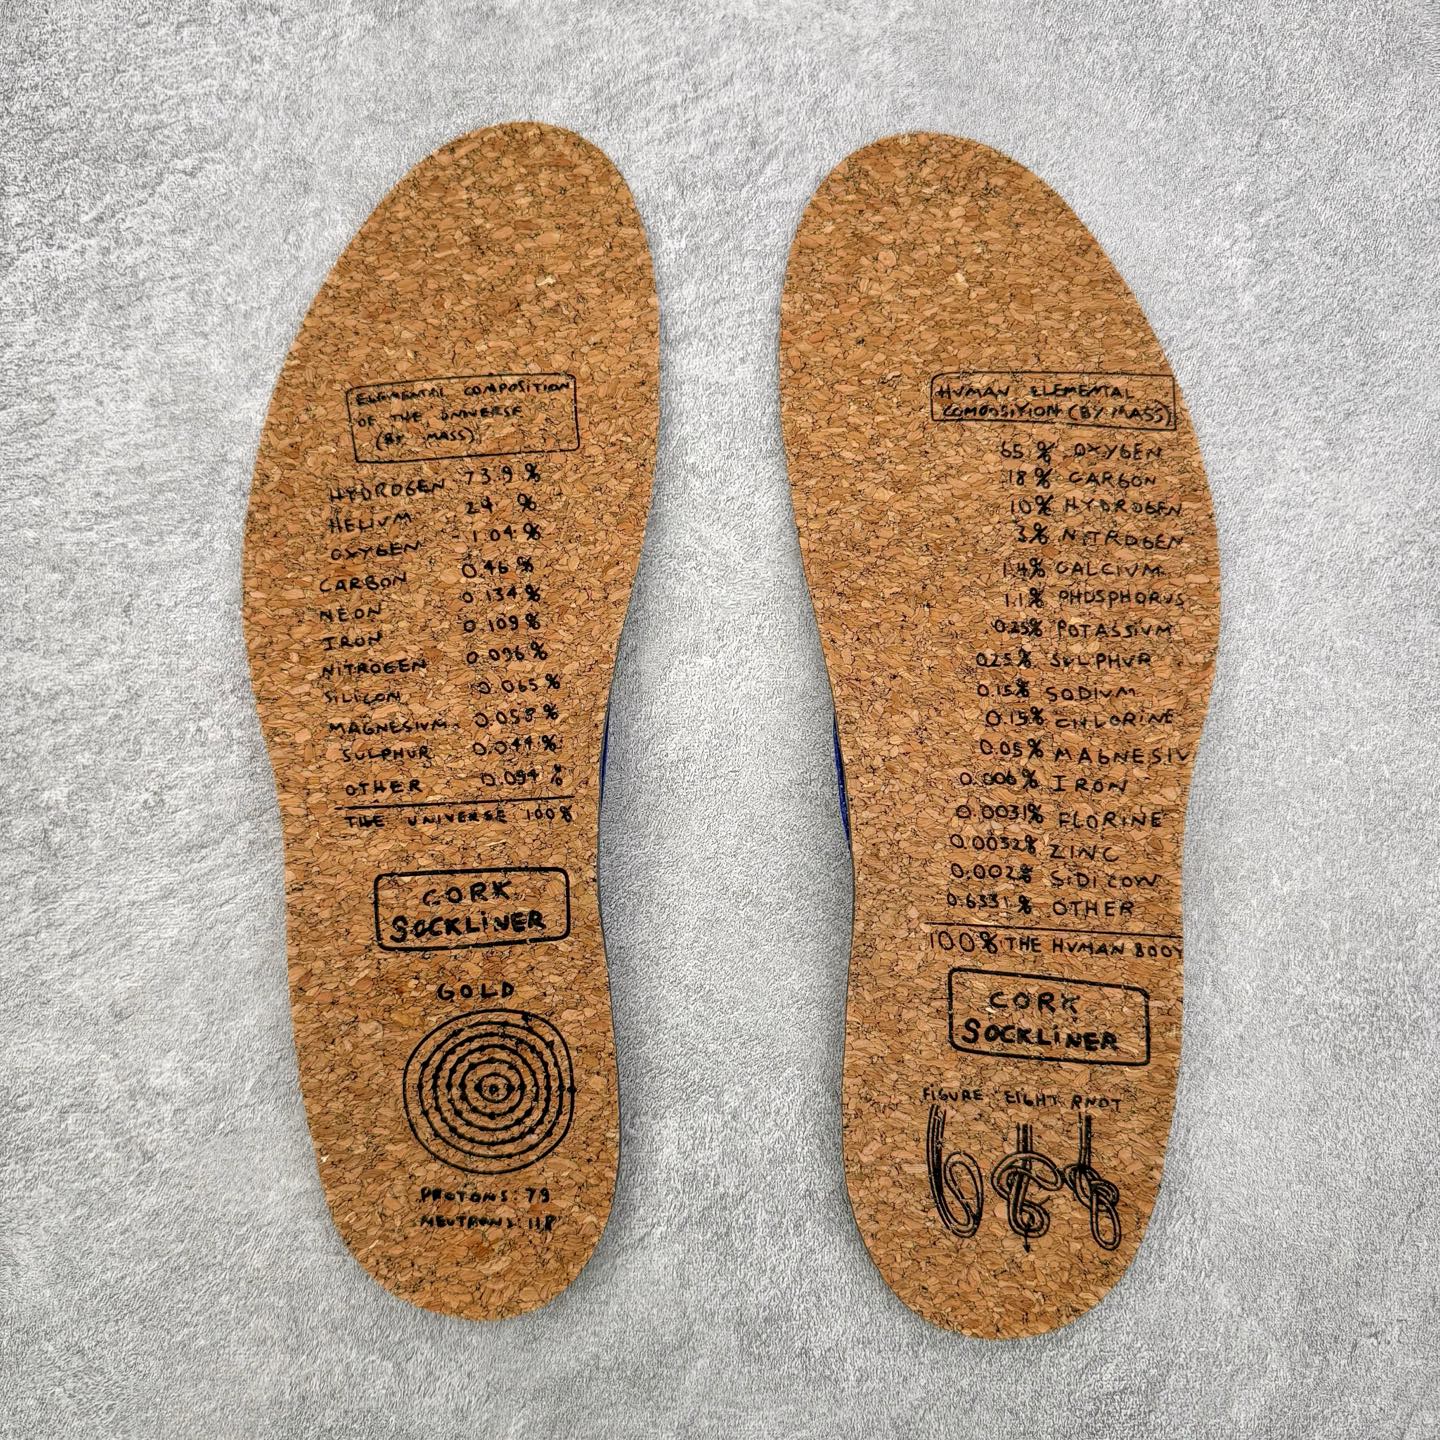 ELEMENTAL COMPOSITION
OF THE UNIVERSE
(BY MASS)
HYDROGEN 73.9 %
HELIUM 24 %
OXYGEN 1.04 %
CARBON 0.46 %
NEON 0.134 %
IRON 0.109 %
NITROGEN 0.096 %
SILICON 0.065 %
MAGNESIUM 0.058 %
SULPHUR 0.044 %
OTHER 0.094 %
THE UNIVERSE 100%
CORK
SOCKLINER
GOLD
PROTONS: 79
NEUTRONS: 118
HUMAN ELEMENTAL
COMPOSITION (BY MASS)
65 % OXYGEN
18 % CARBON
10% HYDROGEN
3% NITROGEN
1.4% CALCIUM
1.1% PHOSPHORUS
0.25% POTASSIUM
0.25% SULPHUR
0.15% SODIUM
0.15% CHLORINE
0.05% MAGNESIU
0.006% IRON
0.0031% FLORINE
0.0032% ZINC
0.002% SIDICOW
0.6331% OTHER
100% THE HUMAN BODY
CORK
SOCKLINER
FIGURE EIGHT KNOT